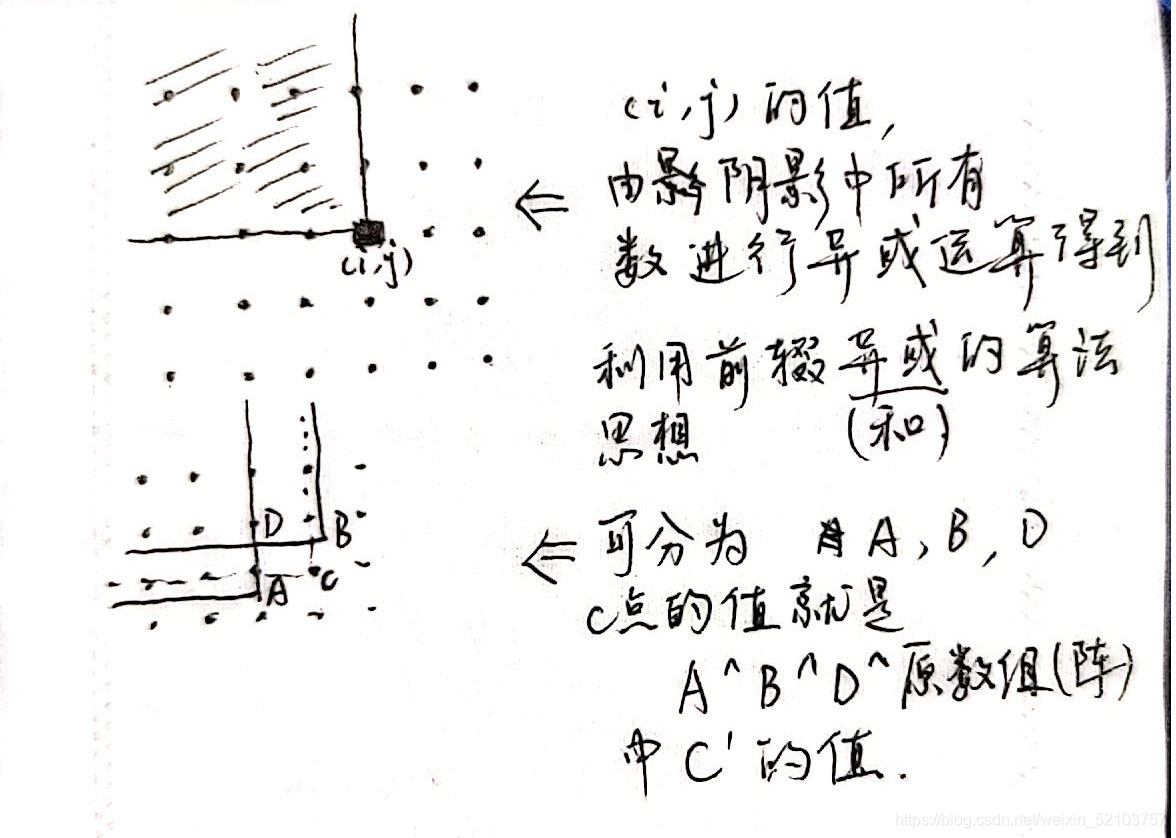 (i,j)的值,
由阴影中所有
数进行异或运算得到
(i,j)
利用前辍异或的算法
思想 (和)
D B
A C
可分为 A,B,D
C点的值就是
A^B^D^原数组(阵)
中C'的值.
https://blog.csdn.net/weixin_52103757